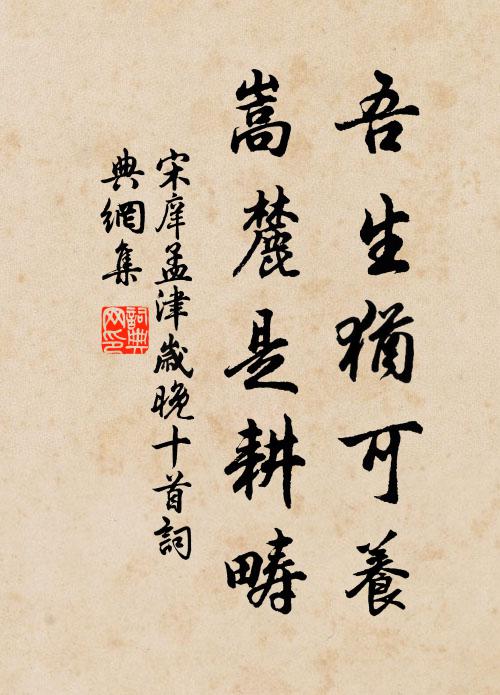 吾生猶可養
嵩麓是耕疇
宋庠孟津歲晚十首詞
典網集
詞典
网印